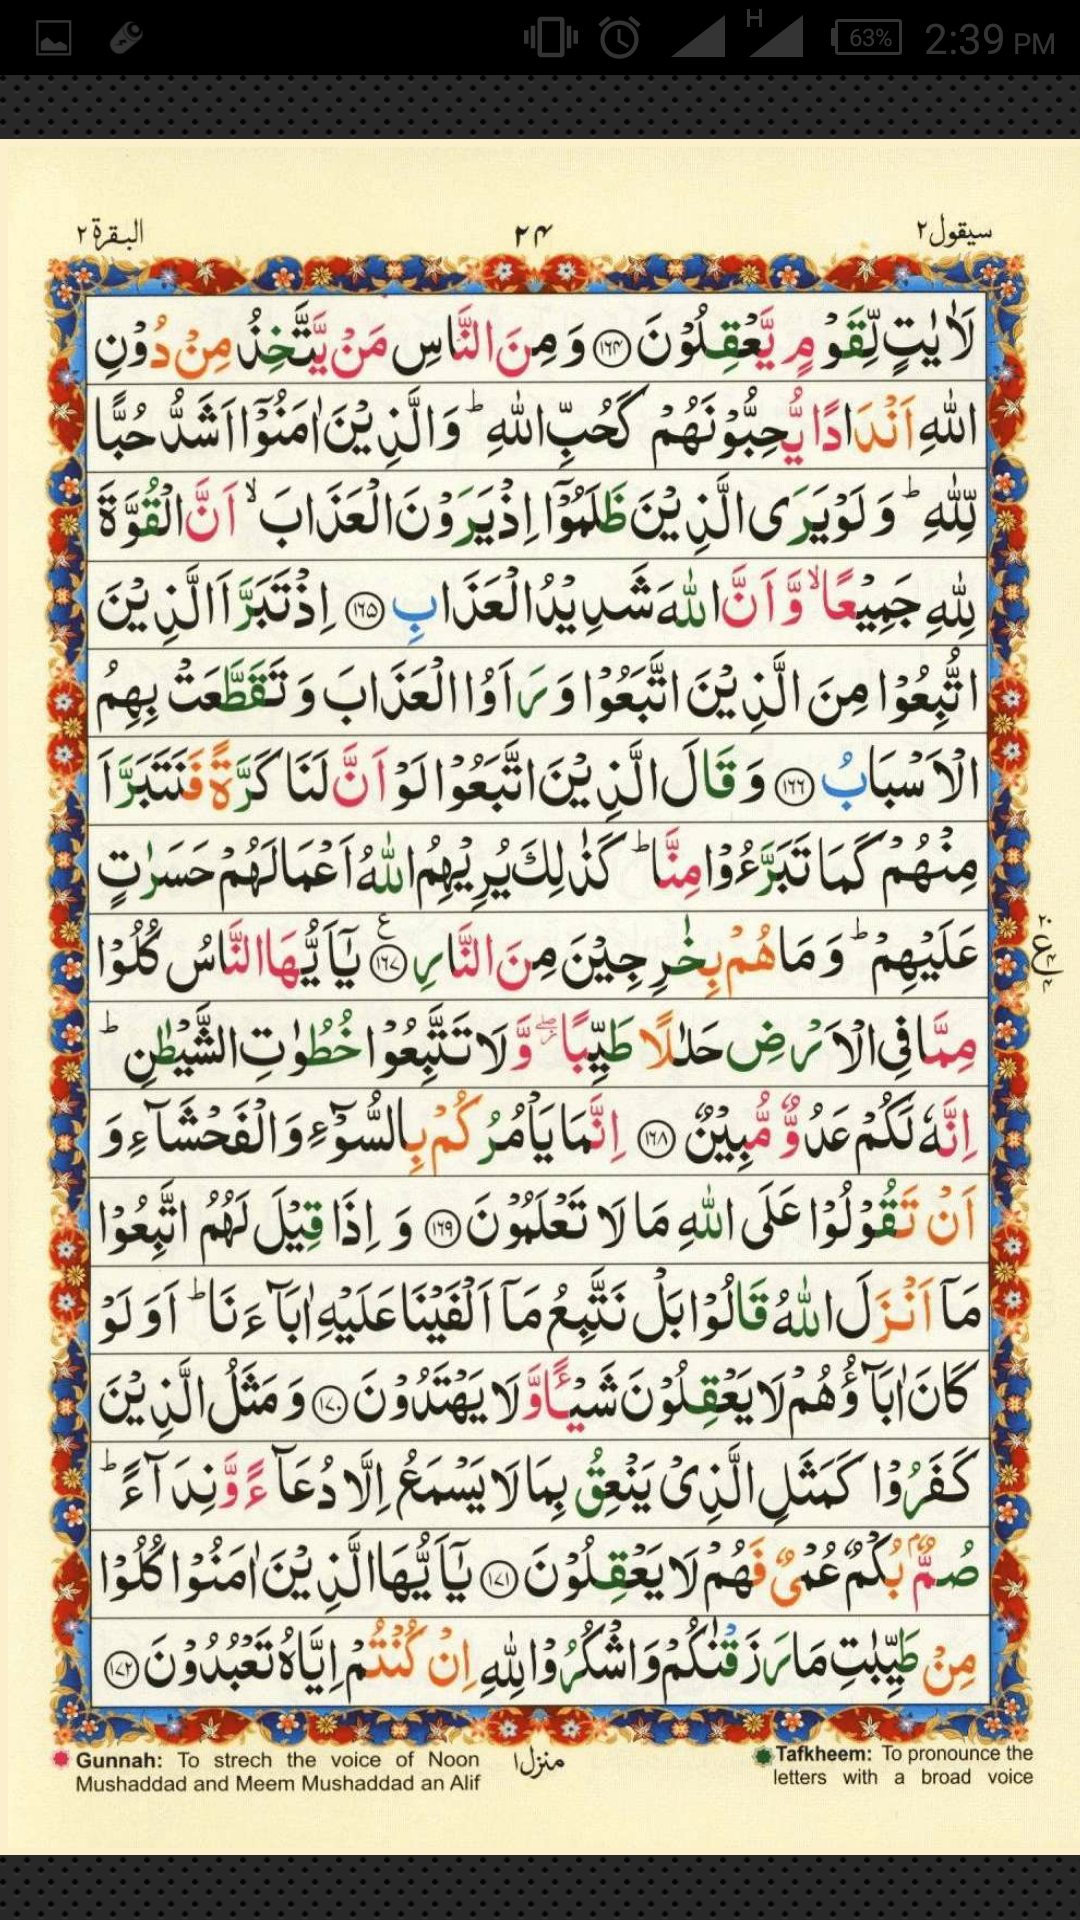 H 63% 2:39 PM
سيقول ٢ ٢٤ البقرة ٢
لَاٰيٰتٍ لِّقَوْمٍ يَّعْقِلُوْنَ ﴿۱۶۴﴾ وَ مِنَ النَّاسِ مَنْ يَّتَّخِذُ مِنْ دُوْنِ
اللّٰهِ اَنْدَادًا يُّحِبُّوْنَهُمْ كَحُبِّ اللّٰهِ ؕ وَالَّذِيْنَ اٰمَنُوْۤا اَشَدُّ حُبًّا
لِّلّٰهِ ؕ وَ لَوْ يَرَى الَّذِيْنَ ظَلَمُوْۤا اِذْ يَرَوْنَ الْعَذَابَ ۙ اَنَّ الْقُوَّةَ
لِلّٰهِ جَمِيْعًا ۙ وَّ اَنَّ اللّٰهَ شَدِيْدُ الْعَذَابِ ﴿۱۶۵﴾ اِذْ تَبَرَّاَ الَّذِيْنَ
اتُّبِعُوْا مِنَ الَّذِيْنَ اتَّبَعُوْا وَ رَاَوُا الْعَذَابَ وَ تَقَطَّعَتْ بِهِمُ
الْاَسْبَابُ ﴿۱۶۶﴾ وَ قَالَ الَّذِيْنَ اتَّبَعُوْا لَوْ اَنَّ لَنَا كَرَّةً فَنَتَبَرَّاَ
مِنْهُمْ كَمَا تَبَرَّءُوْا مِنَّا ؕ كَذٰلِكَ يُرِيْهِمُ اللّٰهُ اَعْمَالَهُمْ حَسَرٰتٍ
عَلَيْهِمْ ؕ وَ مَا هُمْ بِخٰرِجِيْنَ مِنَ النَّارِ ﴿۱۶۷﴾ ع يٰۤاَيُّهَا النَّاسُ كُلُوْا
مِمَّا فِى الْاَرْضِ حَلٰلًا طَيِّبًا ۖ وَّ لَا تَتَّبِعُوْا خُطُوٰتِ الشَّيْطٰنِ ؕ
اِنَّهٗ لَكُمْ عَدُوٌّ مُّبِيْنٌ ﴿۱۶۸﴾ اِنَّمَا يَاْمُرُكُمْ بِالسُّوْٓءِ وَ الْفَحْشَآءِ وَ
اَنْ تَقُوْلُوْا عَلَى اللّٰهِ مَا لَا تَعْلَمُوْنَ ﴿۱۶۹﴾ وَ اِذَا قِيْلَ لَهُمُ اتَّبِعُوْا
مَاۤ اَنْزَلَ اللّٰهُ قَالُوْا بَلْ نَتَّبِعُ مَاۤ اَلْفَيْنَا عَلَيْهِ اٰبَآءَنَا ؕ اَوَ لَوْ
كَانَ اٰبَآؤُهُمْ لَا يَعْقِلُوْنَ شَيْـًٔا وَّ لَا يَهْتَدُوْنَ ﴿۱۷۰﴾ وَ مَثَلُ الَّذِيْنَ
كَفَرُوْا كَمَثَلِ الَّذِىْ يَنْعِقُ بِمَا لَا يَسْمَعُ اِلَّا دُعَآءً وَّ نِدَآءً ؕ
صُمٌّۢ بُكْمٌ عُمْىٌ فَهُمْ لَا يَعْقِلُوْنَ ﴿۱۷۱﴾ يٰۤاَيُّهَا الَّذِيْنَ اٰمَنُوْا كُلُوْا
مِنْ طَيِّبٰتِ مَا رَزَقْنٰكُمْ وَ اشْكُرُوْا لِلّٰهِ اِنْ كُنْتُمْ اِيَّاهُ تَعْبُدُوْنَ ﴿۱۷۲﴾
٢٠
ع
٤
٤
منزل ١
Gunnah: To strech the voice of Noon
Mushaddad and Meem Mushaddad an Alif
Tafkheem: To pronounce the
letters with a broad voice